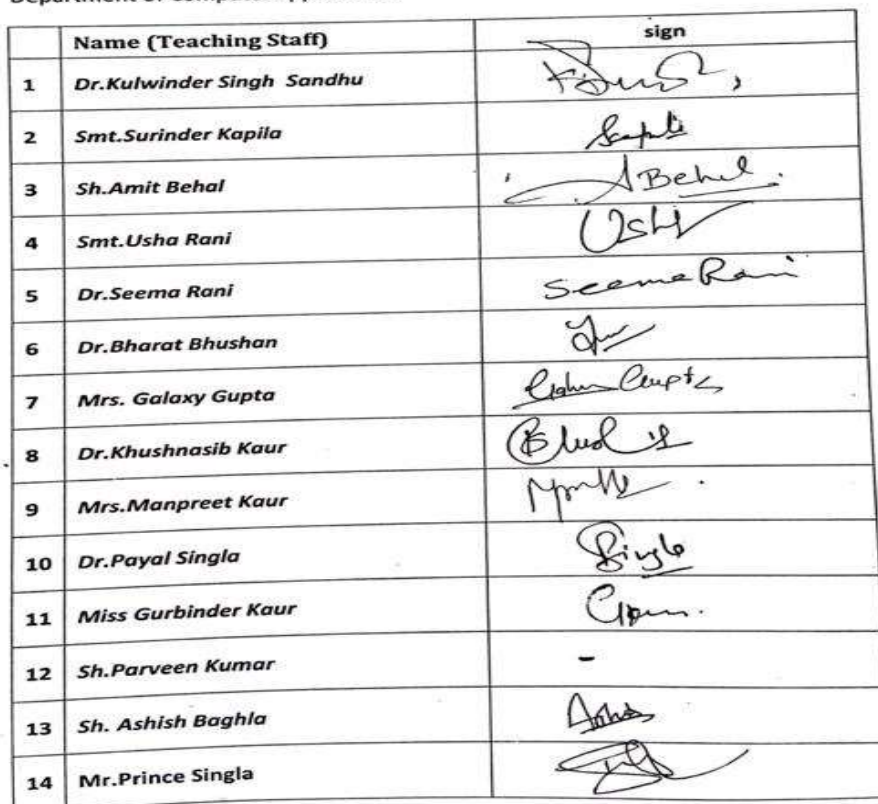 Name (Teaching Staff) sign
1 Dr.Kulwinder Singh Sandhu
2 Smt.Surinder Kapila
3 Sh.Amit Behal ABehal.
4 Smt.Usha Rani Usha
5 Dr.Seema Rani Seema Rani
6 Dr.Bharat Bhushan
7 Mrs. Galaxy Gupta Gupta
8 Dr.Khushnasib Kaur
9 Mrs.Manpreet Kaur
10 Dr.Payal Singla Singla
11 Miss Gurbinder Kaur
12 Sh.Parveen Kumar -
13 Sh. Ashish Baghla
14 Mr.Prince Singla